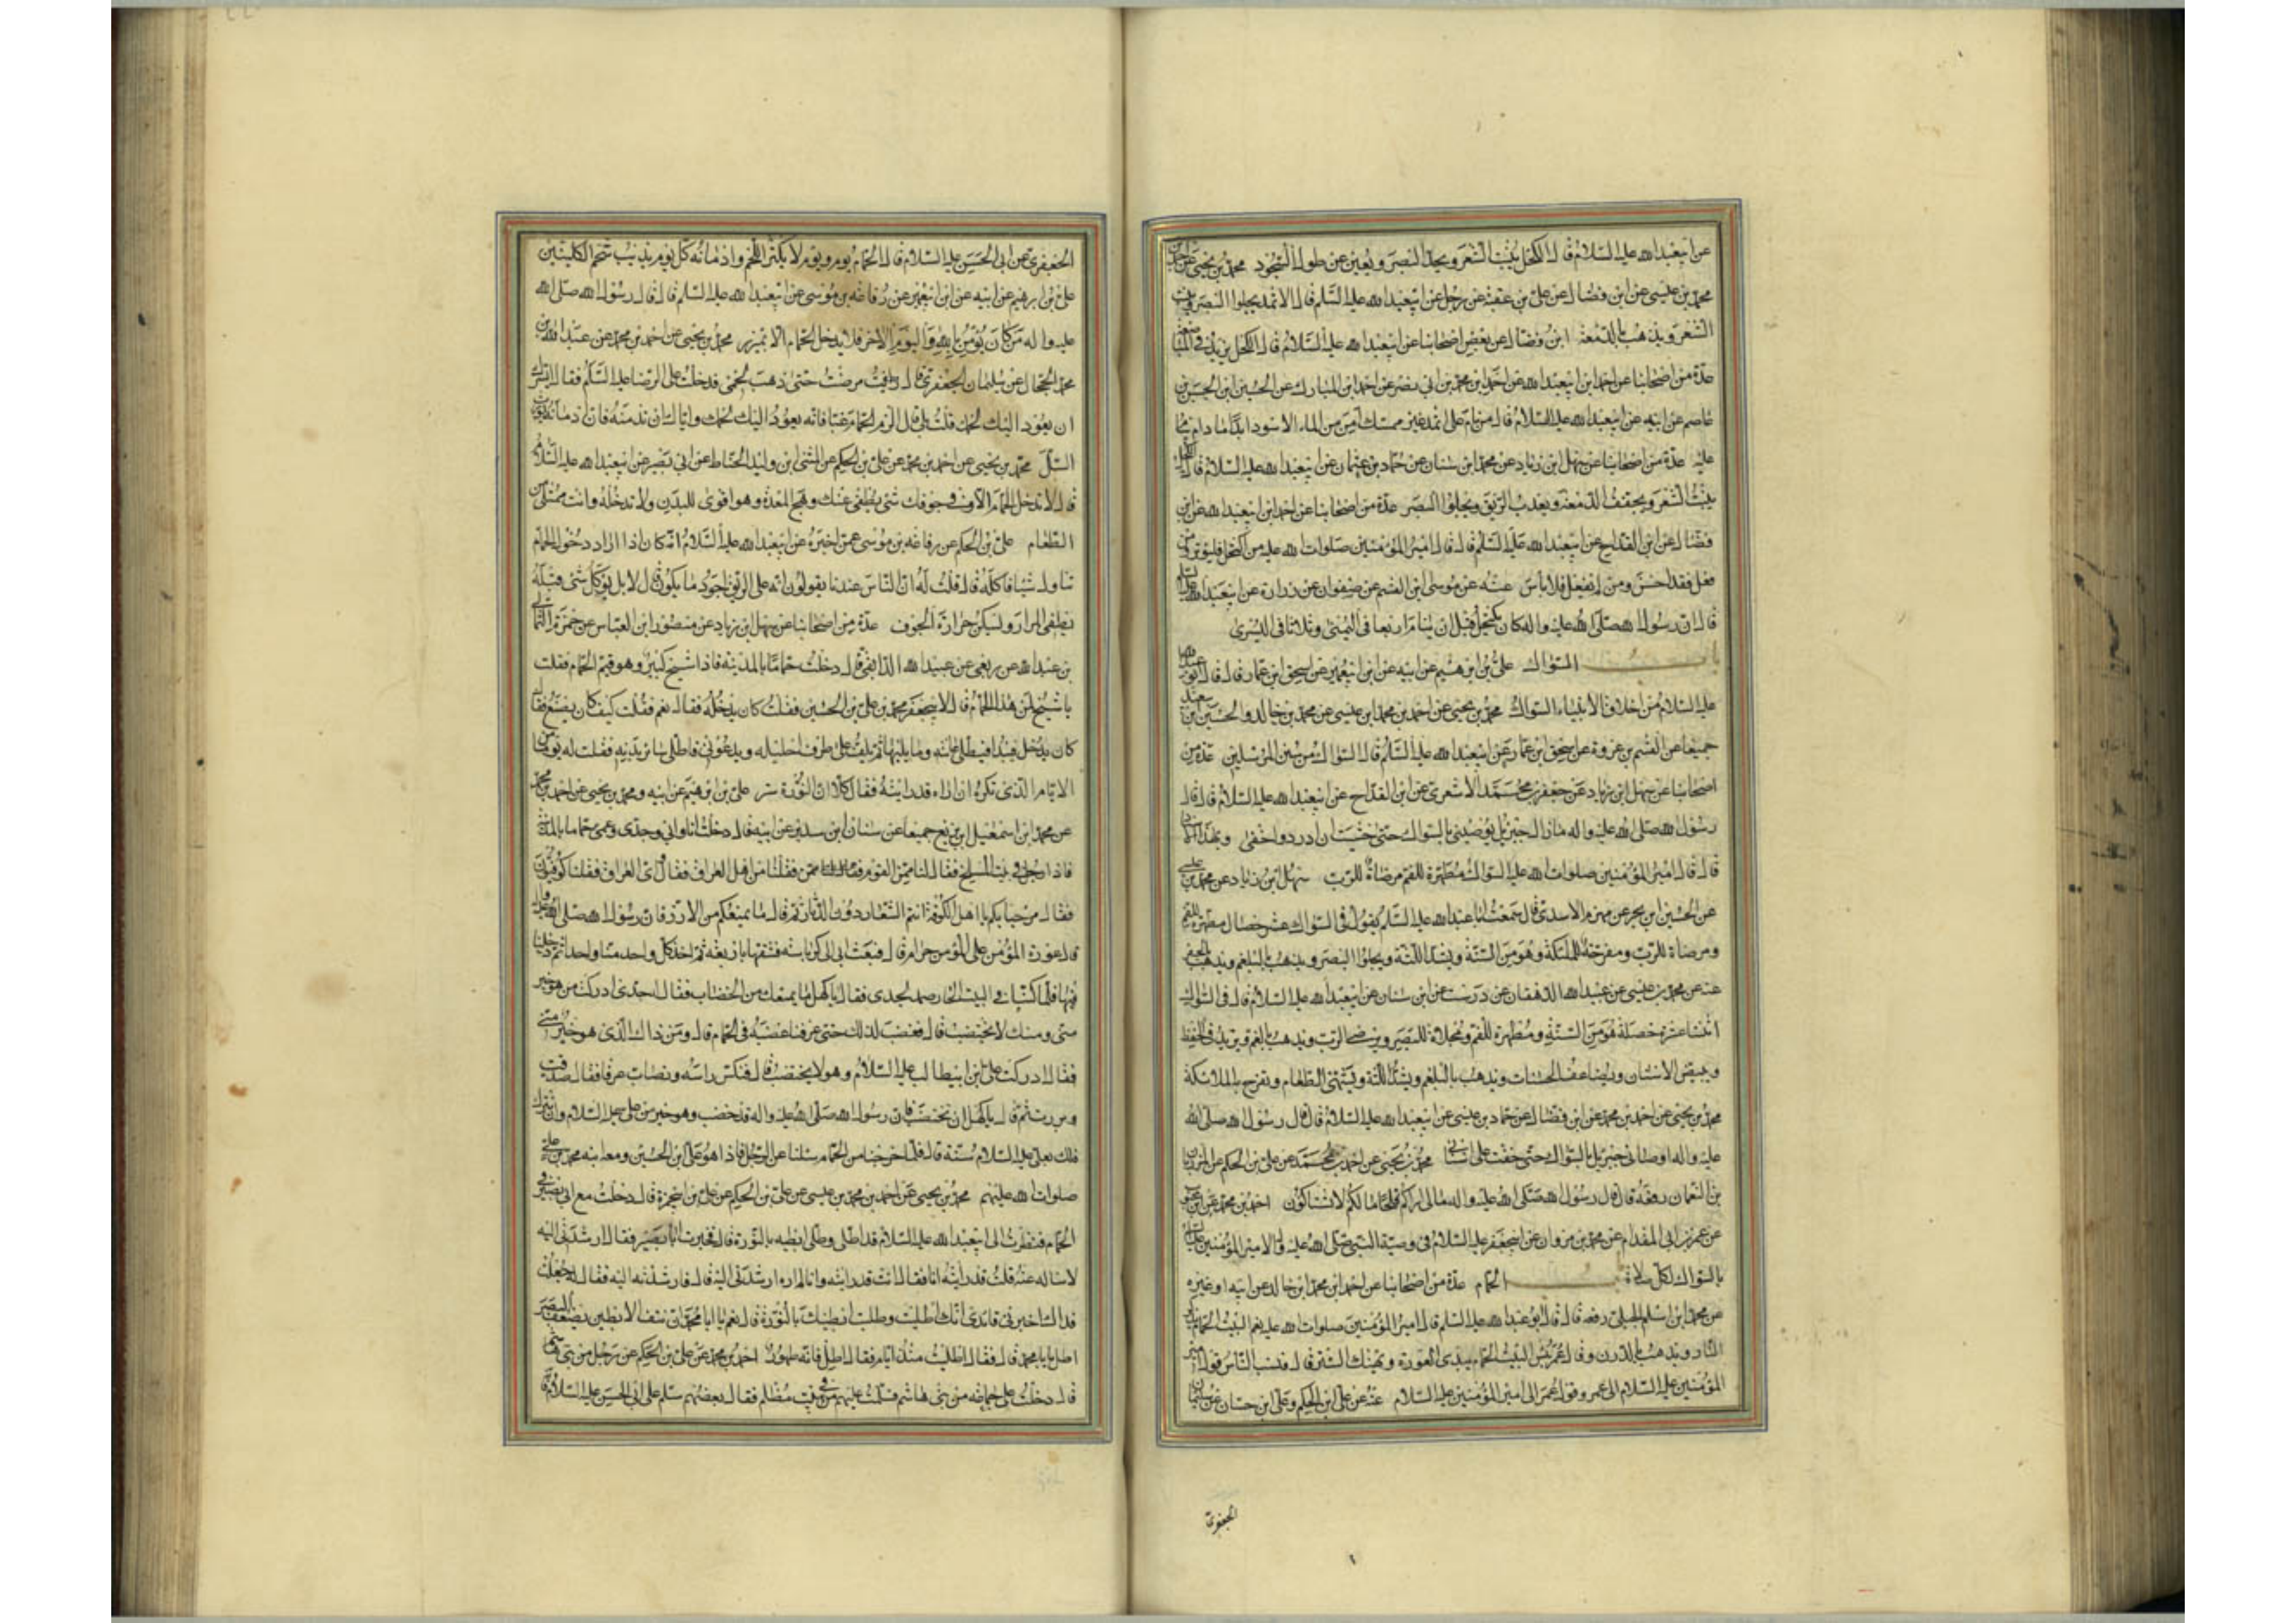 عن ابيعبدالله عليه السلام قال الكحل ينبت الشعر ويحد البصر ويعين عن طول السجود محمد بن يحيى عن احمد بن
محمد بن عيسى عن ابن فضال عن علي بن عقبة عن رجل عن ابيعبدالله عليه السلم قال الاثمد يجلوا البصر وينبت
الشعر ويذهب بالدمعة ابن فضال عن بعض اصحابنا عن ابيعبدالله عليه السلام قال الكحل يزيد في المباضعة
عدة من اصحابنا عن احمد ابن ابيعبدالله عن احمد ابن محمد بن ابي نصر عن احمد ابن المبارك عن الحسين ابن الحسن بن
عاصم عن ابيه عن ابيعبدالله عليه السلام قال من نام على اثمد غير ممسك امن من الماء الاسود ابدا ما دام ينام
عليه عدة من اصحابنا عن سهل ابن زياد عن محمد ابن سنان عن حماد بن عثمان عن ابيعبدالله عليه السلام قال الكحل
ينبت الشعر ويجفف الدمعة ويعذب الريق ويجلوا البصر عدة من اصحابنا عن احمد ابن ابيعبدالله عن ابن
فضال عن ابن القداح عن ابيعبدالله عليه السلم قال قال امير المؤمنين صلوات الله عليه من اكتحل فليوتر ومن
فعل فقد احسن ومن لم يفعل فلا باس عنه عن موسى ابن القسم عن صفوان عن زرارة عن ابيعبدالله عليه السلم
قال ان رسول الله صلى الله عليه واله كان يكتحل قبل ان ينام اربعا في اليمنى وثلاثا في اليسرى
باب السواك علي بن ابرهيم عن ابيه عن ابن ابيعمير عن اسحق ابن عمار قال قال ابو عبدالله
عليه السلام من اخلاق الانبياء السواك محمد بن يحيى عن احمد بن محمد ابن عيسى عن محمد بن خالد والحسين بن سعيد
جميعا عن القسم بن عروة عن اسحق ابن عمار عن ابيعبدالله عليه السلم قال السواك من سنن المرسلين عدة من
اصحابنا عن سهل ابن زياد عن جعفر بن محمد الاشعري عن ابن القداح عن ابيعبدالله عليه السلام قال قال
رسول الله صلى الله عليه واله ما زال جبرئيل يوصيني بالسواك حتى خشيت ان ادرد واحفى وبهذا الاسناد
قال قال امير المؤمنين صلوات الله عليه السواك مطهرة للفم مرضاة للرب سهل ابن زياد عن محمد بن عيسى
عن الحسين ابن بحر عن مهزم الاسدي قال سمعت ابا عبدالله عليه السلم يقول في السواك عشر خصال مطهرة للفم
ومرضاة للرب ومفرحة للملئكة وهو من السنة ويشد اللثة ويجلوا البصر ويذهب بالبلغم ويذهب بالحفر
عنه عن محمد بن عيسى عن عبيدالله الدهقان عن درست عن ابن سنان عن ابيعبدالله عليه السلام قال في السواك
اثنتا عشرة خصلة هو من السنة ومطهرة للفم ومجلاة للبصر ويرضي الرب ويذهب بالغم ويزيد في الحفظ
ويبيض الاسنان ويضاعف الحسنات ويذهب بالبلغم ويشد اللثة ويشهي الطعام وتفرح به الملائكة
محمد بن يحيى عن احمد بن محمد عن ابن فضال عن حماد بن عيسى عن ابيعبدالله عليه السلام قال قال رسول الله صلى الله
عليه واله اوصاني جبرئيل بالسواك حتى خفت على اسناني محمد بن يحيى عن احمد بن محمد عن علي بن الحكم عن المرزبان
بن النعمان رفعه قال قال رسول الله صلى الله عليه واله مالي اراكم قلحا ما لكم لا تستاكون احمد بن محمد عن
عن عمرو بن ابي المقدام عن محمد بن مروان عن ابيجعفر عليه السلام في وصية النبي صلى الله عليه واله لامير المؤمنين عليه السلم
بالسواك لكل صلاة باب الحمام عدة من اصحابنا عن احمد ابن محمد ابن خالد عن ابيه او غيره
عن محمد ابن اسلم الجبلي رفعه قال قال ابو عبدالله عليه السلم قال امير المؤمنين صلوات الله عليه نعم البيت الحمام يذكر
النار ويذهب بالدرن وقال عمر بئس البيت الحمام يبدي العورة ويهتك الستر قال فنسب الناس قول امير
المؤمنين عليه السلام الى عمر وقول عمر الى امير المؤمنين عليه السلام عنه عن علي ابن الحكم وعلي ابن حسان عن سليمان
الجعفري
الجعفري عن ابي الحسن عليه السلام قال الحمام يوم ويوم لا يكثر اللحم وادمانه كل يوم يذيب شحم الكليتين
علي بن ابرهيم عن ابيه عن ابن ابيعمير عن رفاعه بن موسى عن ابيعبدالله عليه السلم قال قال رسول الله صلى الله
عليه واله من كان يؤمن بالله واليوم الاخر فلا يدخل الحمام الا بميزر محمد بن يحيى عن احمد بن محمد عن عبدالله بن
محمد الحجال عن سليمان الجعفري قال مرضت حتى ذهب لحمي فدخلت على الرضا عليه السلم فقال ايسرك
ان يعود اليك لحمك قلت بلى قال الزم الحمام غبا فانه يعود اليك لحمك واياك ان تدمنه فان ادمانه يورث
السل محمد بن يحيى عن احمد بن محمد عن علي بن الحكم عن المثنى ابن وليد الحناط عن ابي بصير عن ابيعبدالله عليه السلام
قال لا تدخل الحمام الا وفي جوفك شئ يطفئ عنك وهج المعدة وهو اقوى للبدن ولا تدخله وانت ممتلئ من
الطعام علي بن الحكم عن رفاعه بن موسى عمن اخبره عن ابيعبدالله عليه السلام انه كان اذا اراد دخول الحمام
تناول شيئا فاكله قال قلت له ان الناس عندنا يقولون انه على الريق اجود ما يكون قال لا بل يؤكل شئ قبله
يطفي المرار ويسكن حرارة الجوف عدة من اصحابنا عن سهل ابن زياد عن منصور ابن العباس عن حمزة
بن عبدالله عن ربعي عن عبيدالله الدابقي قال دخلت حماما بالمدينة فاذا شيخ كبير وهو قيم الحمام فقلت
يا شيخ لمن هذا الحمام قال لابيجعفر محمد بن علي بن الحسين فقلت كان يدخله فقال نعم فقلت كيف كان يصنع قال
كان يدخل فيبدا فيطلي عانته وما يليها ثم يلف على طرف احليله ويدعوني فاطلي سائر بدنه فقلت له يوما من
الايام الذي تكره ان اراه قد رايته فقال كلا ان النورة ستر علي بن ابرهيم عن ابيه ومحمد بن يحيى عن احمد بن محمد
عن محمد ابن اسمعيل ابن بزيع جميعا عن حنان ابن سدير عن ابيه قال دخلت انا وابي وجدي وعمي حماما بالمدينة
فاذا رجل في بيت المسلخ فقال لنا ممن القوم فقلنا من اهل العراق فقال اي العراق فقلنا كوفيون
فقال مرحبا بكم يا اهل الكوفة انتم الشعار دون الدثار ثم قال ما يمنعكم من الازر فان رسول الله صلى الله عليه واله
قال عورة المؤمن على المؤمن حرام قال فبعث ابي الى كرباسة فشقها باربعة ثم اخذ كل واحد منا واحدا ثم دخلنا
فيها فلما كنا في البيت الحار صمد لجدي فقال يا كهل ما يمنعك من الخضاب فقال له جدي ادركت من هو خير
مني ومنك لا يختضب قال فغضب لذلك حتى عرفنا غضبه في الحمام قال ومن ذاك الذي هو خير مني
فقال ادركت علي ابن ابيطالب عليه السلام وهو لا يختضب قال فنكس راسه وتصاب عرقا فقال صدقت
وبررت ثم قال يا كهل ان تختضب فان رسول الله صلى الله عليه واله قد خضب وهو خير من علي عليه السلام وان تترك
فلك بعلي عليه السلام سنة قال فلما خرجنا من الحمام سئلنا عن الرجل فاذا هو علي ابن الحسين ومعه ابنه محمد بن علي
صلوات الله عليهم محمد بن يحيى عن احمد بن محمد بن عيسى عن علي بن الحكم عن علي بن ابيحمزة قال دخلت مع ابي بصير في
الحمام فنظرت الى ابيعبدالله عليه السلام قد اطلى وطلى ابطيه بالنورة قال فخبرت ابا بصير فقال ارشدني اليه
لاساله عنه فقلت قد رايته انا فقال انت قد رايته وانا لم اره ارشدني اليه قال فارشدته اليه فقال له جعلت
فداك اخبرني قائدي انك اطليت وطليت ابطيك بالنورة قال نعم يا ابا محمد ان نتف الابطين يضعف البصر
اطل يا ابا محمد قال فقال اطليت منذ ايام فقال اطل فانه طهور احمد بن محمد عن علي بن الحكم عن رجل من بني هاشم
قال دخلت على جماعه من بني هاشم فسلمت عليهم في بيت مظلم فقال بعضهم سلم على ابي الحسن عليه السلام